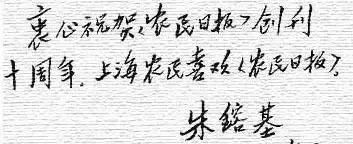 衷心祝贺《农民日报》创刊
十周年。上海农民喜欢《农民日报》。
朱镕基